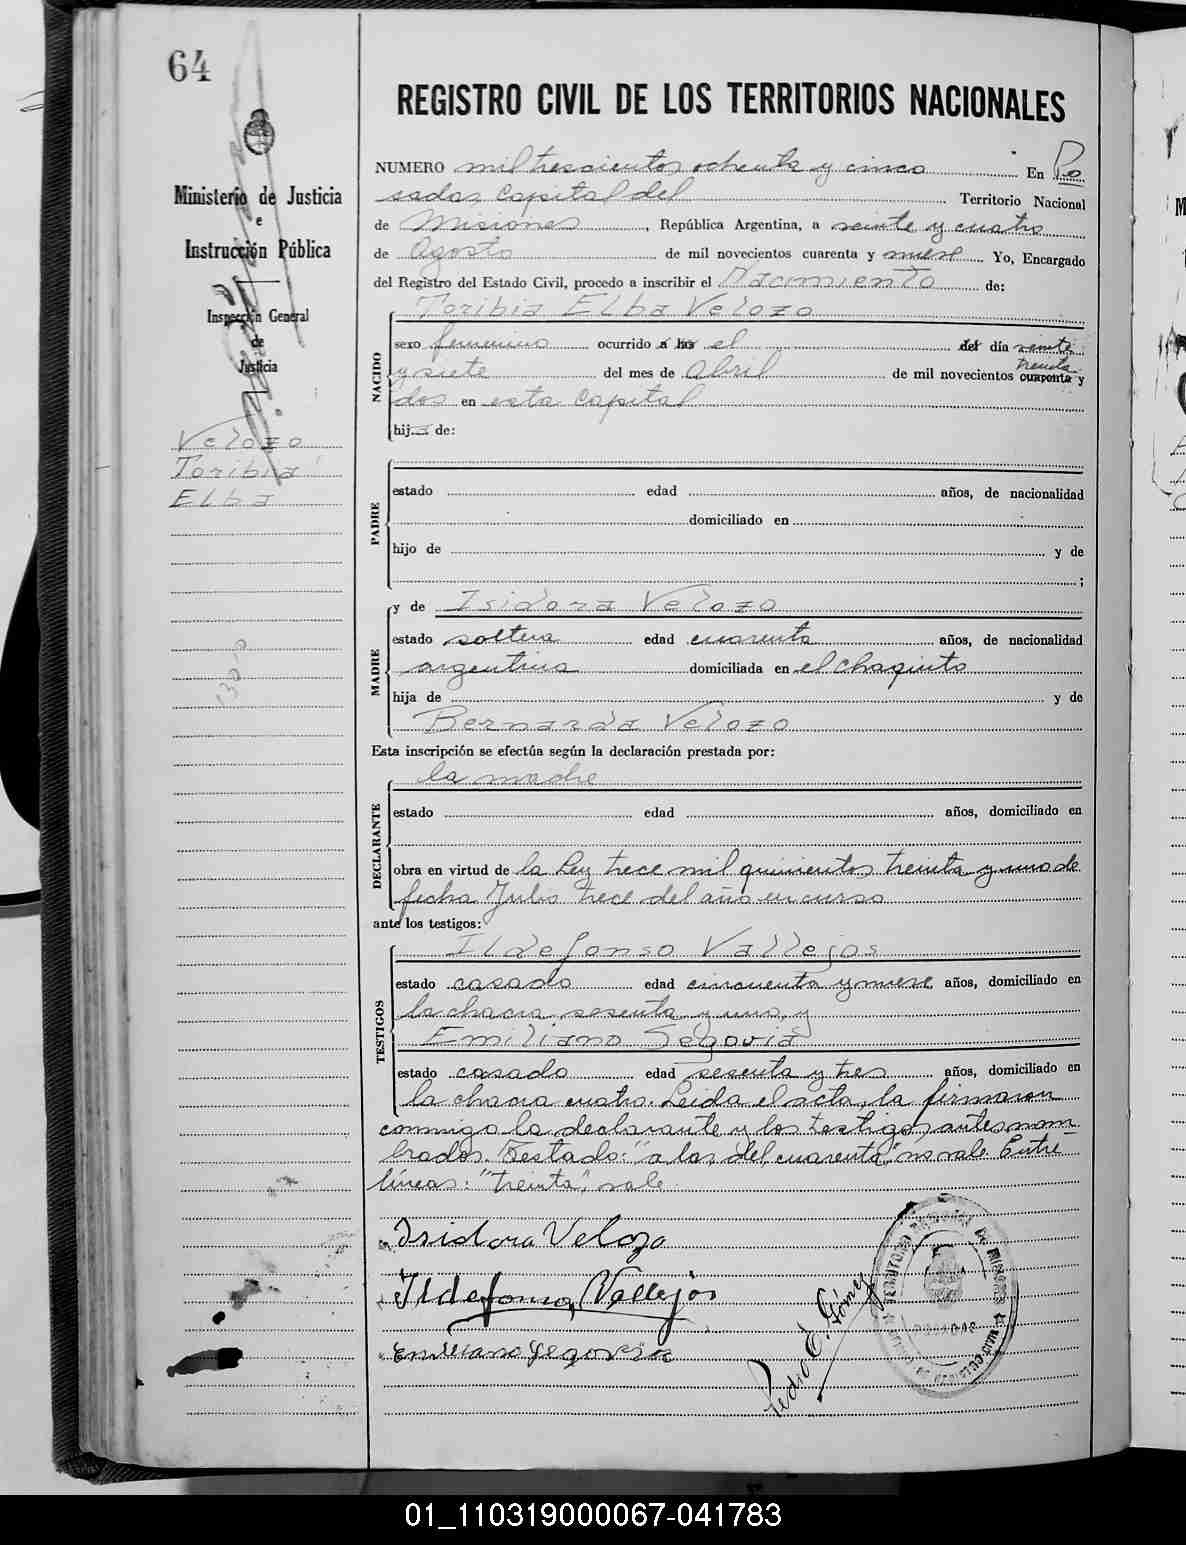 64
Ministerio de Justicia
e
Instrucción Pública
Inspección General
de
Justicia
Velozo
Toribia
Elba
REGISTRO CIVIL DE LOS TERRITORIOS NACIONALES
NUMERO mil trescientos ochenta y cinco En Po
sadas capital del Territorio Nacional
de Misiones, República Argentina, a veinte y cuatro
de Agosto de mil novecientos cuarenta y nueve Yo, Encargado
del Registro del Estado Civil, procedo a inscribir el Nacimiento de:
NACIDO
Toribia Elba Velozo
sexo femenino ocurrido a las el del día veinte
y siete del mes de Abril de mil novecientos cuarenta treinta y
dos en esta capital
hija de:
PADRE
estado edad años, de nacionalidad
domiciliado en
hijo de y de
;
MADRE
y de Isidora Velozo
estado soltera edad cuarenta años, de nacionalidad
argentina domiciliada en el chaquito
hija de y de
Bernarda Velozo
Esta inscripción se efectúa según la declaración prestada por:
DECLARANTE
la madre
estado edad años, domiciliado en
obra en virtud de la Ley trece mil quinientos treinta y uno de
fecha Julio trece del año en curso
ante los testigos:
TESTIGOS
Ildefonso Vallejos
estado casado edad cincuenta y nueve años, domiciliado en
la chacra sesenta y una, y
Emiliano Segovia
estado casado edad sesenta y tres años, domiciliado en
la chacra cuatro. Leida el acta, la firmaron
conmigo la declarante y los testigos antes nom-
brados. Testado: "a las, del, cuarenta", no vale. Entre
líneas: "treinta", vale.
Isidora Velozo
Ildefonso Vallejos
Emiliano Segovia
Pedro E. Gómez
01_110319000067-041783